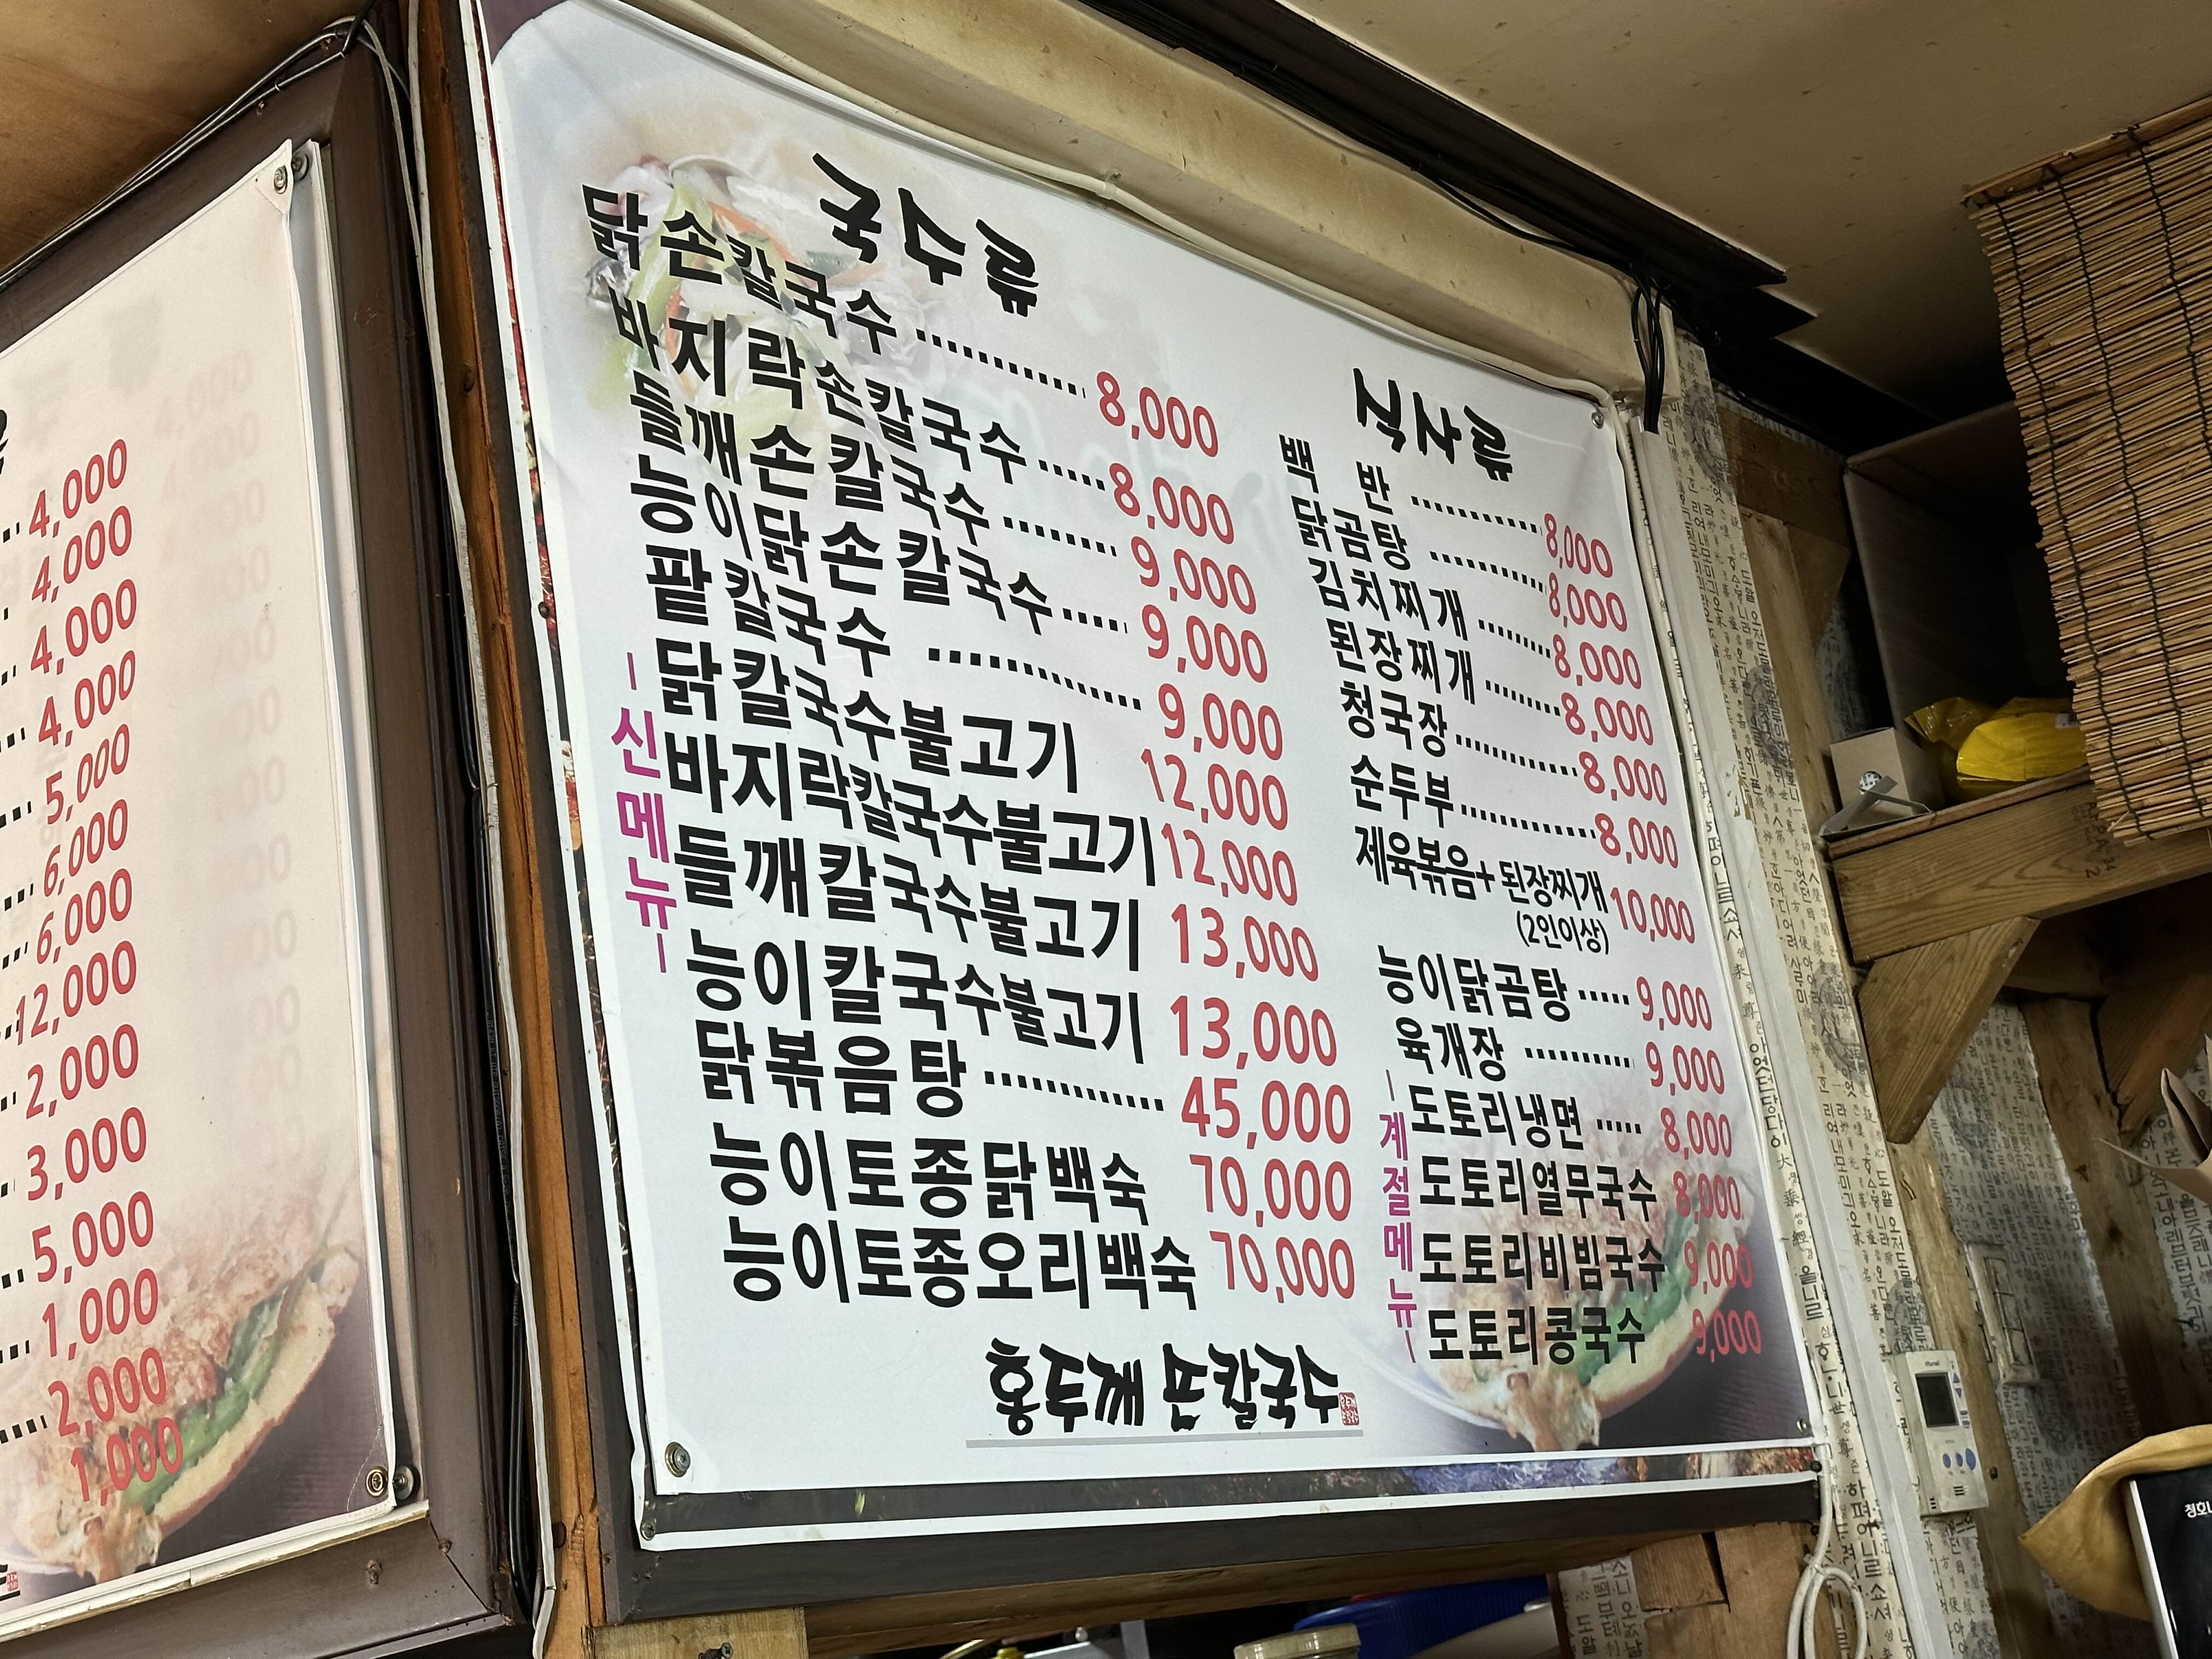 4,000
4,000
4,000
4,000
5,000
6,000
6,000
12,000
2,000
3,000
5,000
1,000
2,000
1,000
국수류
닭손칼국수 ............ 8,000
바지락손칼국수 ..... 8,000
들깨손칼국수 ........ 9,000
능이닭손칼국수 ..... 9,000
팥칼국수 ............... 9,000
-신메뉴-
닭칼국수불고기 12,000
바지락칼국수불고기 12,000
들깨칼국수불고기 13,000
능이칼국수불고기 13,000
닭볶음탕 ............. 45,000
능이토종닭백숙 70,000
능이토종오리백숙 70,000
국국류
백 반 ............ 8,000
닭곰탕 ........... 8,000
김치찌개 ....... 8,000
된장찌개 ....... 8,000
청국장 ............ 8,000
순두부 ............. 8,000
제육볶음+된장찌개 10,000
(2인이상)
능이닭곰탕 ..... 9,000
육개장 .......... 9,000
-계절메뉴-
도토리냉면 ..... 8,000
도토리열무국수 8,000
도토리비빔국수 9,000
도토리콩국수 9,000
홍두깨 손칼국수